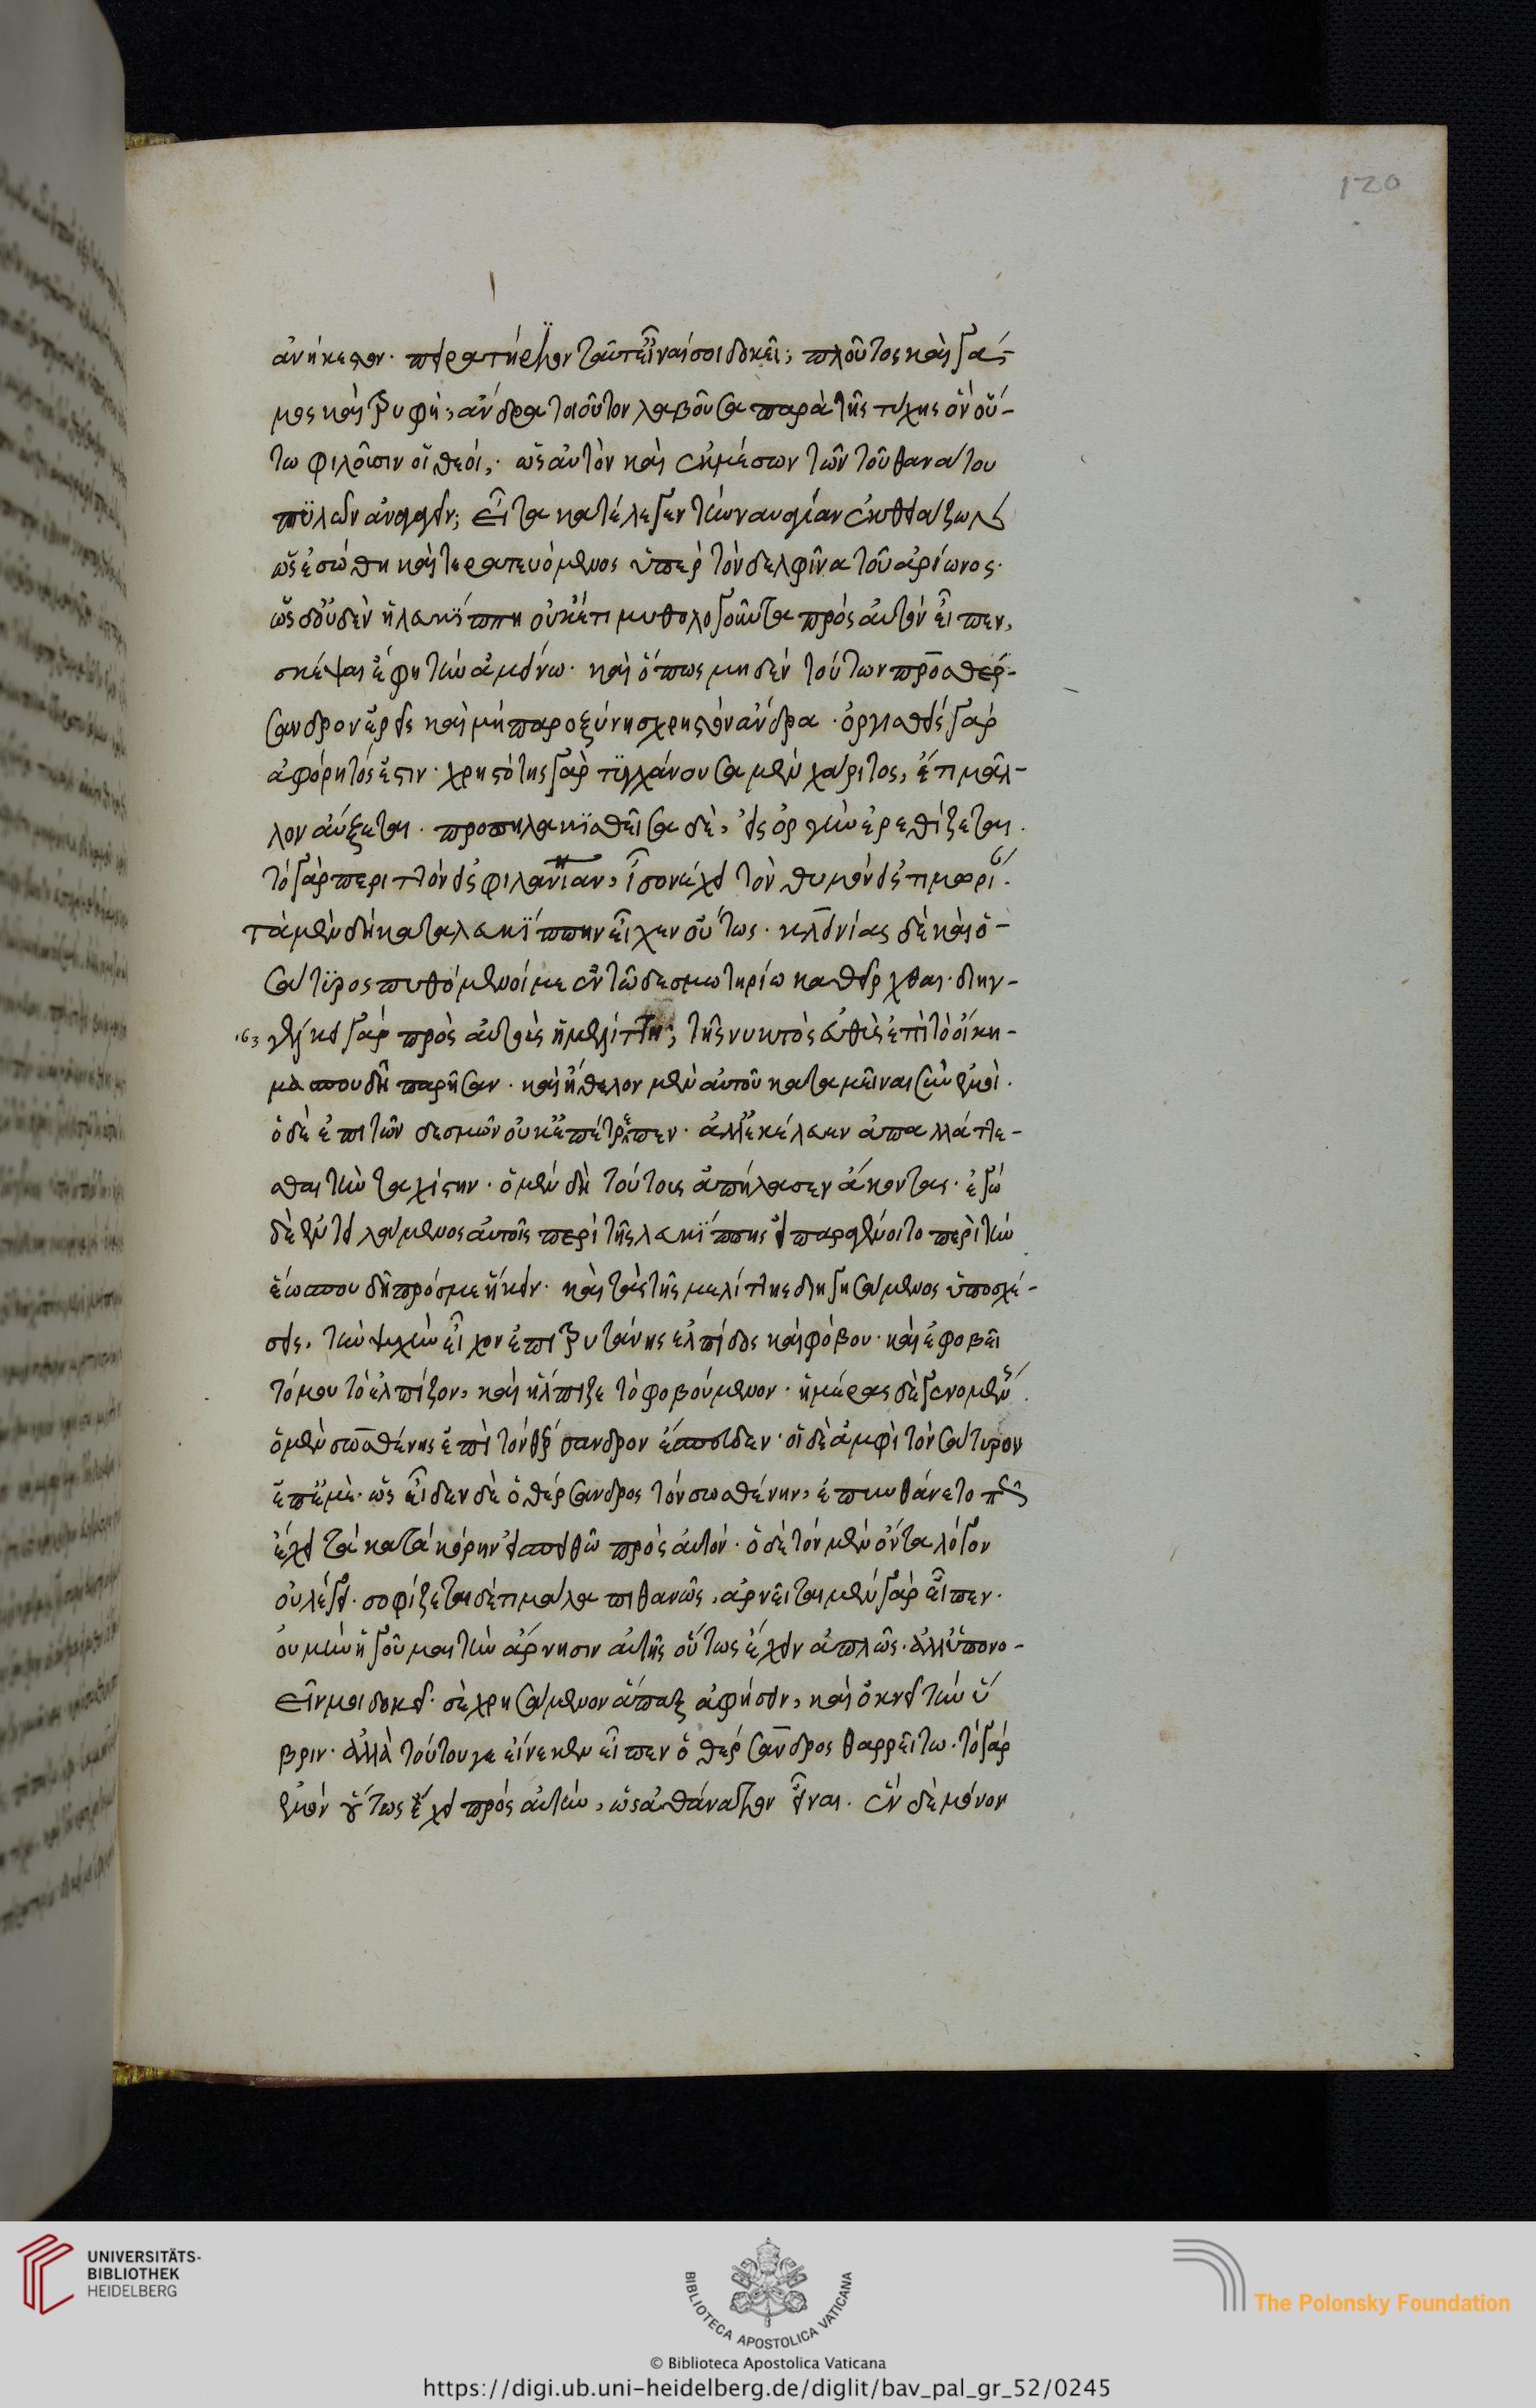 120
ἀνήκεστον. πειρατήριον ταῦτ' εἶναί σοι δοκεῖ; πλοῦτος καὶ γά-
μος καὶ τρυφή, ἄνδρα τοιοῦτον λαβοῦσα παρὰ τῆς τύχης ὃν οὕ-
τω φιλοῦσιν οἱ θεοί, ὡς αὐτὸν καὶ ἐκ μέσων τῶν τοῦ θανάτου
πυλῶν ἀναγαγεῖν; εἶτα κατέλεξεν τὴν ναυαγίαν ἐκθειάζων
ὡς ἐσώθη καὶ τερατευόμενος ὑπὲρ τὸν δελφῖνα τοῦ ἀρίωνος.
ὡς δ' οὐδὲν ἡ λευκίππη οὐκέτι μυθολογοῦντα πρὸς αὐτὸν εἶπεν,
σκέψαι ἔφη τὴν ἀμείνω. καὶ ὅπως μηδὲν τούτων πρὸς θέρ-
σανδρον ἐρεῖς καὶ μὴ παροξύνῃς χρηστὸν ἄνδρα. ὀργισθεὶς γὰρ
ἀφόρητός ἐστιν. χρηστότης γὰρ τυγχάνουσα μὲν χάριτος, ἔτι μᾶλ-
λον αὔξεται. προπηλακισθεῖσα δὲ, εἰς ὀργὴν ἐρεθίζεται.
τὸ γὰρ περιττὸν εἰς φιλανίαν, ἴσον ἔχει τὸν θυμὸν εἰς τιμωρί.
τὰ μὲν δὴ κατὰ λευκίππην εἶχεν οὕτως. κλεινίας δὲ καὶ ὁ-
σάτυρος πυθόμενοί με ἐν τῷ δεσμωτηρίῳ καθεῖρχθαι. διηγ-
163 γέλκει γὰρ πρὸς αὐτοὺς ἡ μελίττη; τῆς νυκτὸς εὐθὺς ἐπὶ τὸ οἴκη-
μα σπουδῇ παρῆσαν. καὶ ἤθελον μὲν αὐτοῦ καταμεῖναι σὺν ἐμοί.
ὁ δὲ ἐπὶ τῶν δεσμῶν οὐκ ἐπέτρεπεν. ἀλλ' ἐκέλευεν ἀπαλλάττε-
σθαι τὴν ταχίστην. ὁ μὲν δὴ τούτους ἀπήλασεν ἄκοντας. ἐγὼ
δὲ ἐντειλάμενος αὐτοῖς περὶ τῆς λευκίππης εἰ παραγένοιτο περὶ τὴν
ἕω σπουδῇ πρός με ἥκειν. καὶ τὰς τῆς μελίττης διηγησάμενος ὑποσχέ-
σεις, τὴν ψυχὴν εἶχον ἐπὶ τρυτάνης ἐλπίδος καὶ φόβου. καὶ ἐφοβεῖ
τό μου τὸ ἐλπίζον, καὶ ἤλπιζε τὸ φοβούμενον. ἡμέρας δὲ γενομένης
ὁ μὲν σωσθένης ἐπὶ τὸν θέρσανδρον ἔσπευδεν. οἱ δὲ ἀμφὶ τὸν σάτυρον
ἐπ' ἐμέ. ὡς εἶδεν δὲ ὁ θέρσανδρος τὸν σωσθένην, ἐπυνθάνετο πῶς
ἔχει τὰ κατὰ κόρην εἰς πειθὼ πρὸς αὐτόν. ὁ δὲ τὸν μὲν ὄντα λόγον
οὐ λέγει. σοφίζεται δέ τι μάλα πιθανῶς. ἀρνεῖται μὲν γὰρ εἶπεν.
οὐ μὴν ἡγοῦμαι τὴν ἄρνησιν αὐτῆς οὕτως ἔχειν ἁπλῶς. ἀλλ' ὑπονο-
εῖν μοι δοκεῖ. σὲ χρησάμενον ἅπαξ ἀφήσειν, καὶ ὀκνεῖ τὴν ὕ
βριν. ἀλλὰ τούτου γε εἵνεκεν εἶπεν ὁ θέρσανδρος θαρρείτω. τὸ γὰρ
ἐμὸν οὕτως ἔχει πρὸς αὐτὴν, ὡς ἀθάνατον εἶναι. ἓν δὲ μόνον
UNIVERSITÄTS-
BIBLIOTHEK
HEIDELBERG
BIBLIOTECA APOSTOLICA VATICANA
The Polonsky Foundation
© Biblioteca Apostolica Vaticana
https://digi.ub.uni-heidelberg.de/diglit/bav_pal_gr_52/0245